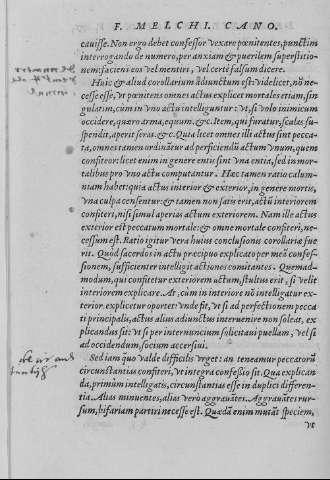 F. MELCHI. CANO.
cauisse. Non ergo debet confessor vexare pœnitentes, punctim
interrogando de numero, per anxiam & puerilem superstitio-
nem: facieni eos vel mentiri, vel certè falsum dicere.
Huic & aliud corollarium adiunctum est: videlicet, nõ ne-
cesse esse, vt pœnitens omnes actus explicet mortales etiam, sin
gulatim, cum in vno actu intelliguntur: vt, si volo inimicum
occidere, quæro arma, equum. &c. Item, qui furatur, scalas su-
spendit, aperit seras. &c. Quia licet omnes illi actus sint pecca-
ta, omnes tamen ordinãtur ad perficiendũ actum vnum, quem
confiteor: licet enim in genere entis sint vna entia, sed in mor-
talibus pro vno actu computantur. Hæc tamen ratio calum-
niam habet: quia actus interior & exterior, in genere mortis,
vna culpa censentur: & tamen non satis erit, actũ interiorem
confiteri, nisi simul aperias actum exteriorem. Nam ille actus
exterior est peccatum mortale: & omne mortale confiteri, ne-
cessum est. Ratio igitur vera huius conclusionis corollaria fue
rit. Quòd sacerdos in actu præcipuo explicato per meã confes-
sionem, sufficienter intelligit actiones comitantes. Quemad-
modum, qui confitetur exteriorem actum, stultus erit, si velit
interiorem explicare. At, cum in interiore nõ intelligatur ex-
terior, explicetur oportet: vnde fit, vt si ad perfectionem pecca
ti principalis, actus alius adiunctus interuenire non soleat, ex
plicandus sit: vt si per internuncium solicitaui puellam, vel si
ad occidendum, socium accersiui.
Sed iam quæstio valde difficilis vrget: an teneamur peccatorũ
circunstantias confiteri, vt integra confessio sit. Qua explican
da, primùm intelligatis, circunstantias esse in duplici differen-
tia. Alias minuentes, alias verò aggrauãtes. Aggrauãtes rur-
sum, bifariam partiri necesse est. Quædã enim mutãt speciem,
vt